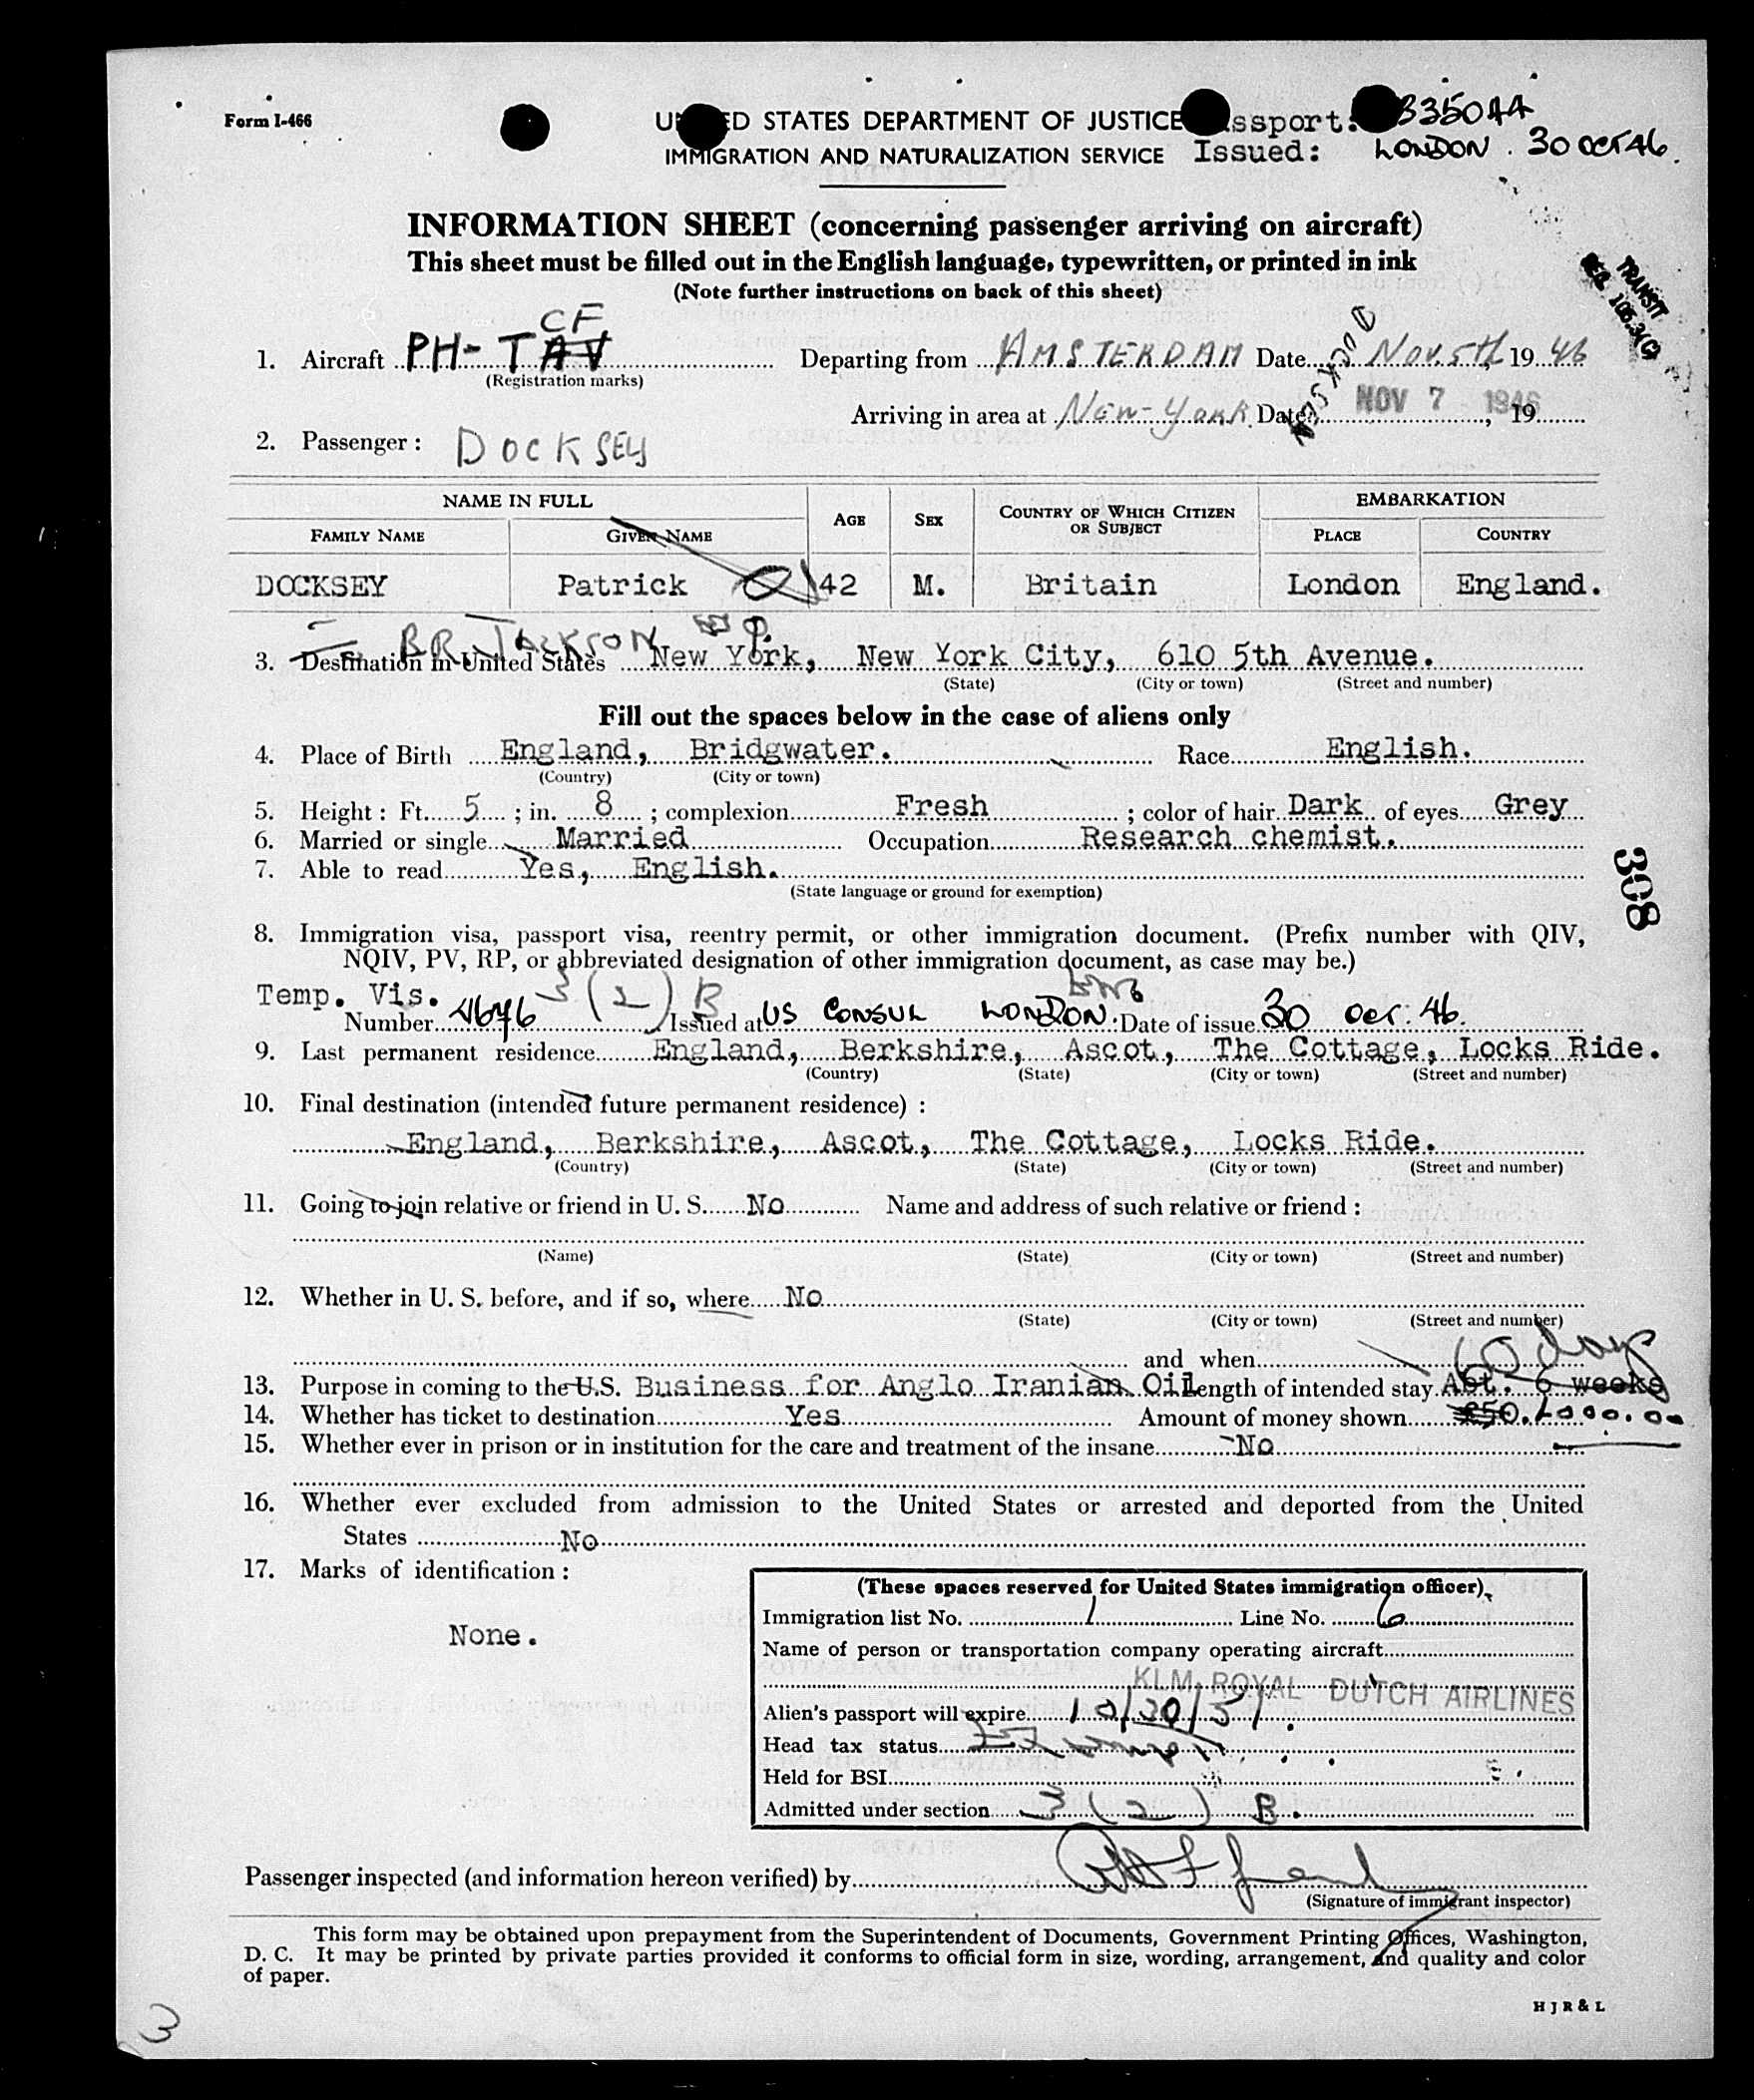 Form I-466
UNITED STATES DEPARTMENT OF JUSTICE
IMMIGRATION AND NATURALIZATION SERVICE
Passport: 335044
Issued: LONDON. 30 OCT 46.
INFORMATION SHEET (concerning passenger arriving on aircraft)
This sheet must be filled out in the English language, typewritten, or printed in ink
(Note further instructions on back of this sheet)
TRANSIT
SEC 105.3(C)
CF
1. Aircraft PH-TAV Departing from AMSTERDAM Date Nov. 5th, 19 46
(Registration marks)
Arriving in area at New-York Date NOV 7 1946, 19
2. Passenger: DOCKSEY
NAME IN FULL AGE SEX COUNTRY OF WHICH CITIZEN OR SUBJECT EMBARKATION
FAMILY NAME GIVEN NAME PLACE COUNTRY
DOCKSEY Patrick 42 M. Britain London England.
B.R. JACKSON
3. Destination in United States New York, New York City, 610 5th Avenue.
(State) (City or town) (Street and number)
Fill out the spaces below in the case of aliens only
4. Place of Birth England, Bridgwater. Race English.
(Country) (City or town)
5. Height: Ft. 5; in. 8; complexion Fresh; color of hair Dark of eyes Grey
6. Married or single Married Occupation Research chemist.
7. Able to read Yes, English.
(State language or ground for exemption)
308
8. Immigration visa, passport visa, reentry permit, or other immigration document. (Prefix number with QIV,
NQIV, PV, RP, or abbreviated designation of other immigration document, as case may be.)
Temp. Vis. 3(2)B
Number Issued at US CONSUL LONDON. Date of issue 30 OCT. 46.
9. Last permanent residence England, Berkshire, Ascot, The Cottage, Locks Ride.
(Country) (State) (City or town) (Street and number)
10. Final destination (intended future permanent residence):
England, Berkshire, Ascot, The Cottage, Locks Ride.
(Country) (State) (City or town) (Street and number)
11. Going to join relative or friend in U. S. No Name and address of such relative or friend:
(Name) (State) (City or town) (Street and number)
12. Whether in U. S. before, and if so, where No
(State) (City or town) (Street and number)
and when 60 days
13. Purpose in coming to the U.S. Business for Anglo Iranian Oil Length of intended stay Abt. 6 weeks
14. Whether has ticket to destination Yes Amount of money shown £50. 1000.00
15. Whether ever in prison or in institution for the care and treatment of the insane No
16. Whether ever excluded from admission to the United States or arrested and deported from the United
States No
17. Marks of identification:
None.
(These spaces reserved for United States immigration officer)
Immigration list No. 1 Line No. 6
Name of person or transportation company operating aircraft
KLM, ROYAL DUTCH AIRLINES
Alien's passport will expire 10/30/51.
Head tax status Exempt
Held for BSI
Admitted under section 3(2) B.
Passenger inspected (and information hereon verified) by
(Signature of immigrant inspector)
This form may be obtained upon prepayment from the Superintendent of Documents, Government Printing Offices, Washington,
D. C. It may be printed by private parties provided it conforms to official form in size, wording, arrangement, and quality and color
of paper.
H J R & L
3